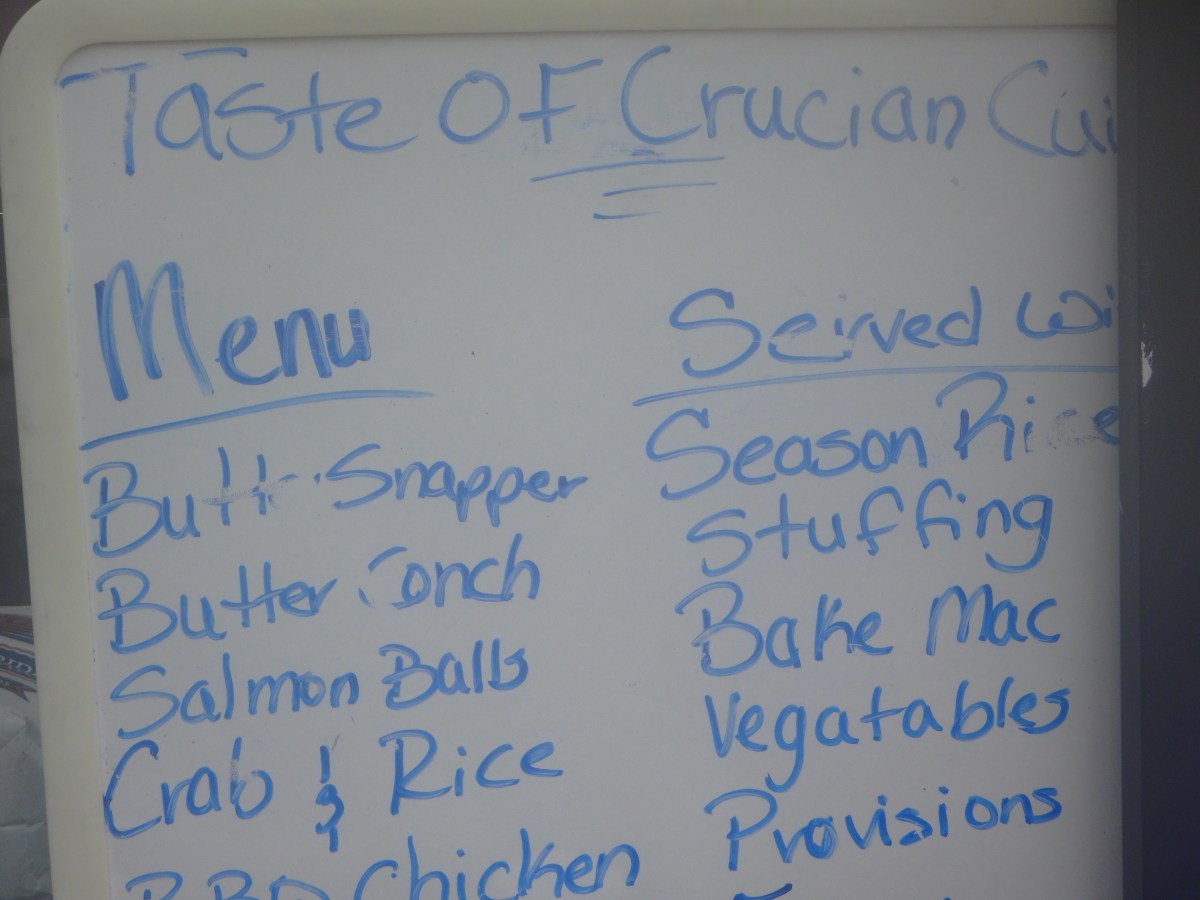 Taste OF Crucian Cui
Menu
Butt Snapper
Butter Conch
Salmon Balls
Crab & Rice
BBQ Chicken
Served Wi
Season Rice
Stuffing
Bake Mac
Vegatables
Provisions